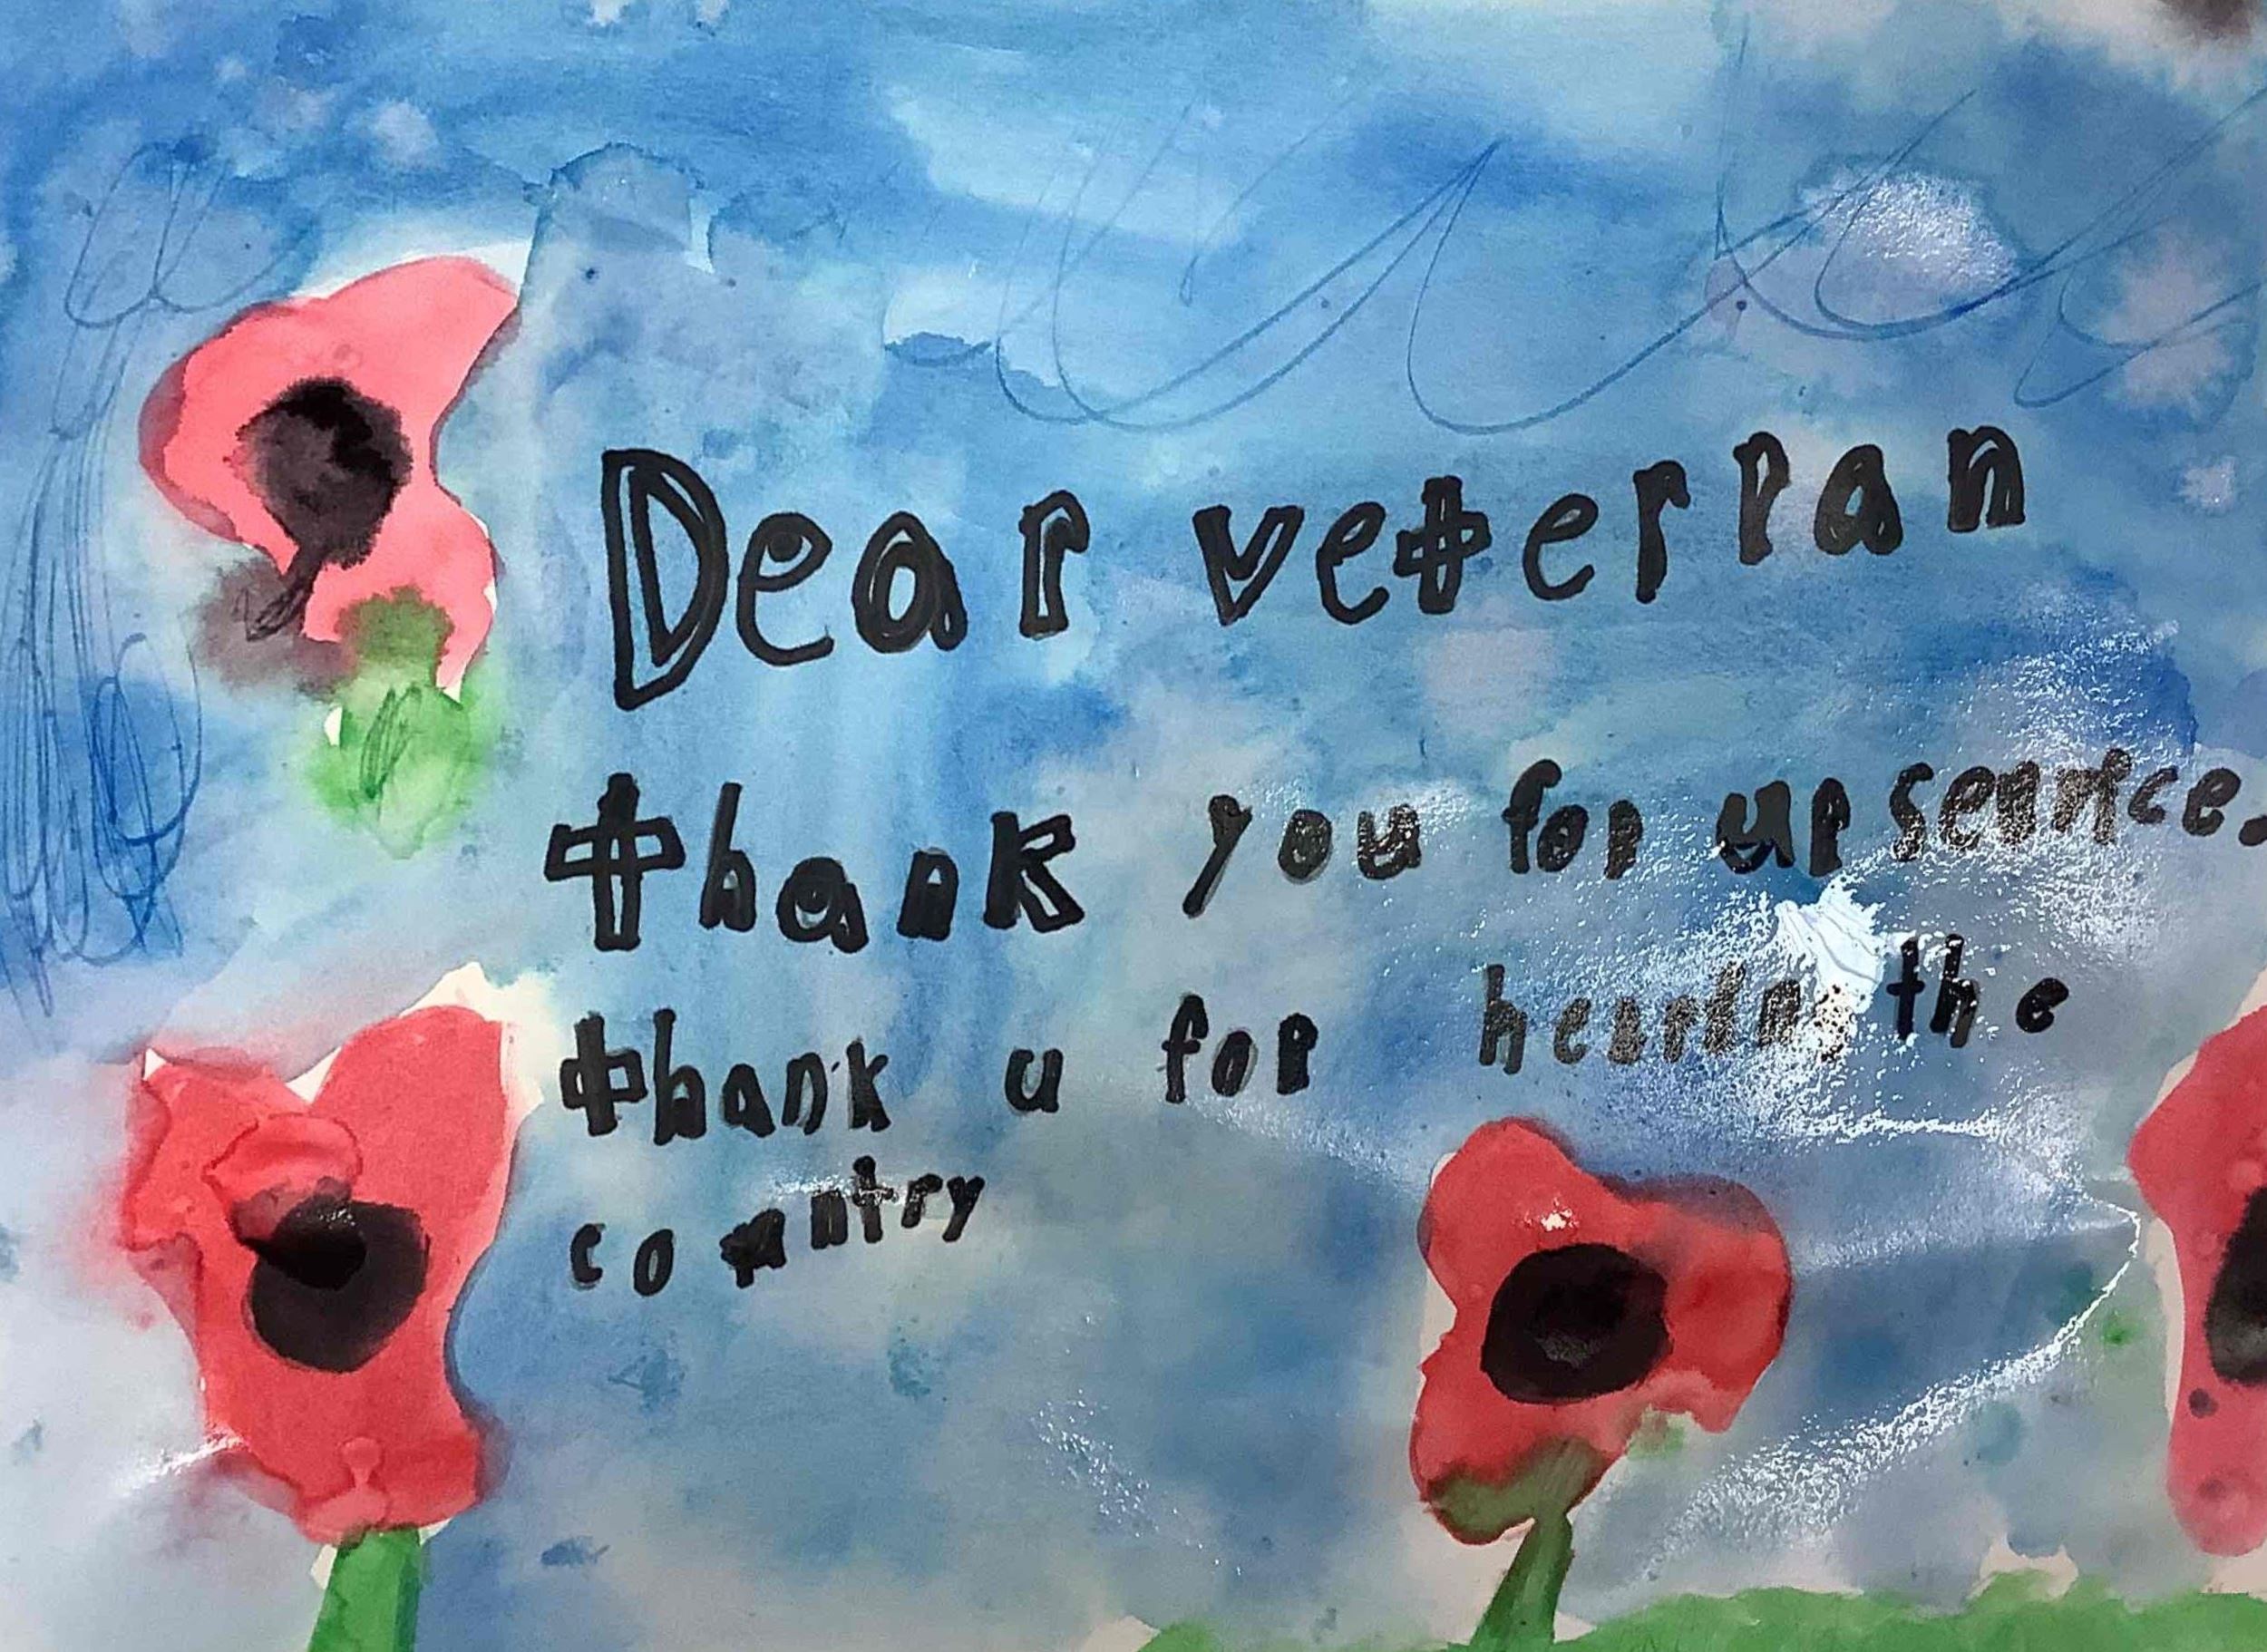 Dear veterran
thank you for ur service.
thank u for the
country